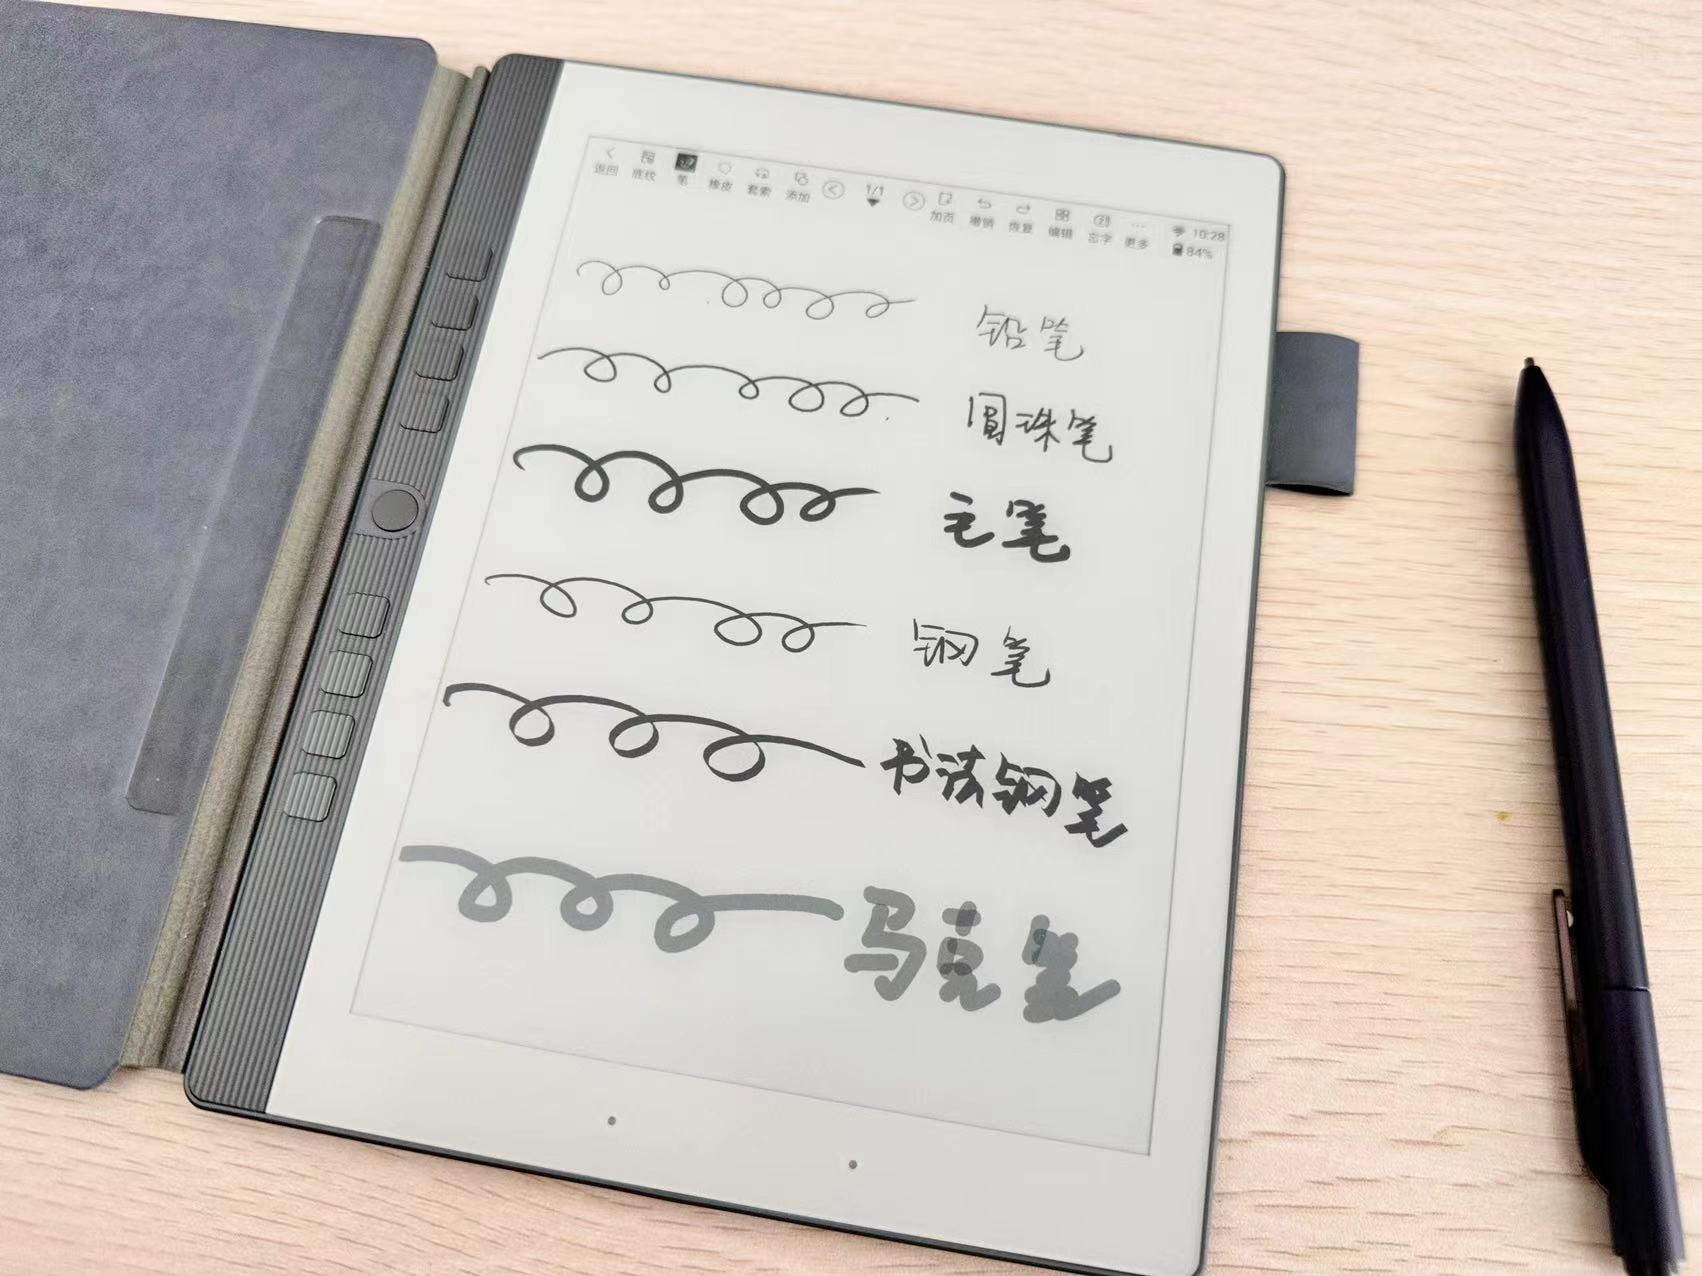 返回 底纹 笔 橡皮 套索 添加 1/1 加页 撤销 恢复 编辑 忘字 更多 10:28
84%
铅笔
圆珠笔
毛笔
钢笔
书法钢笔
马克笔